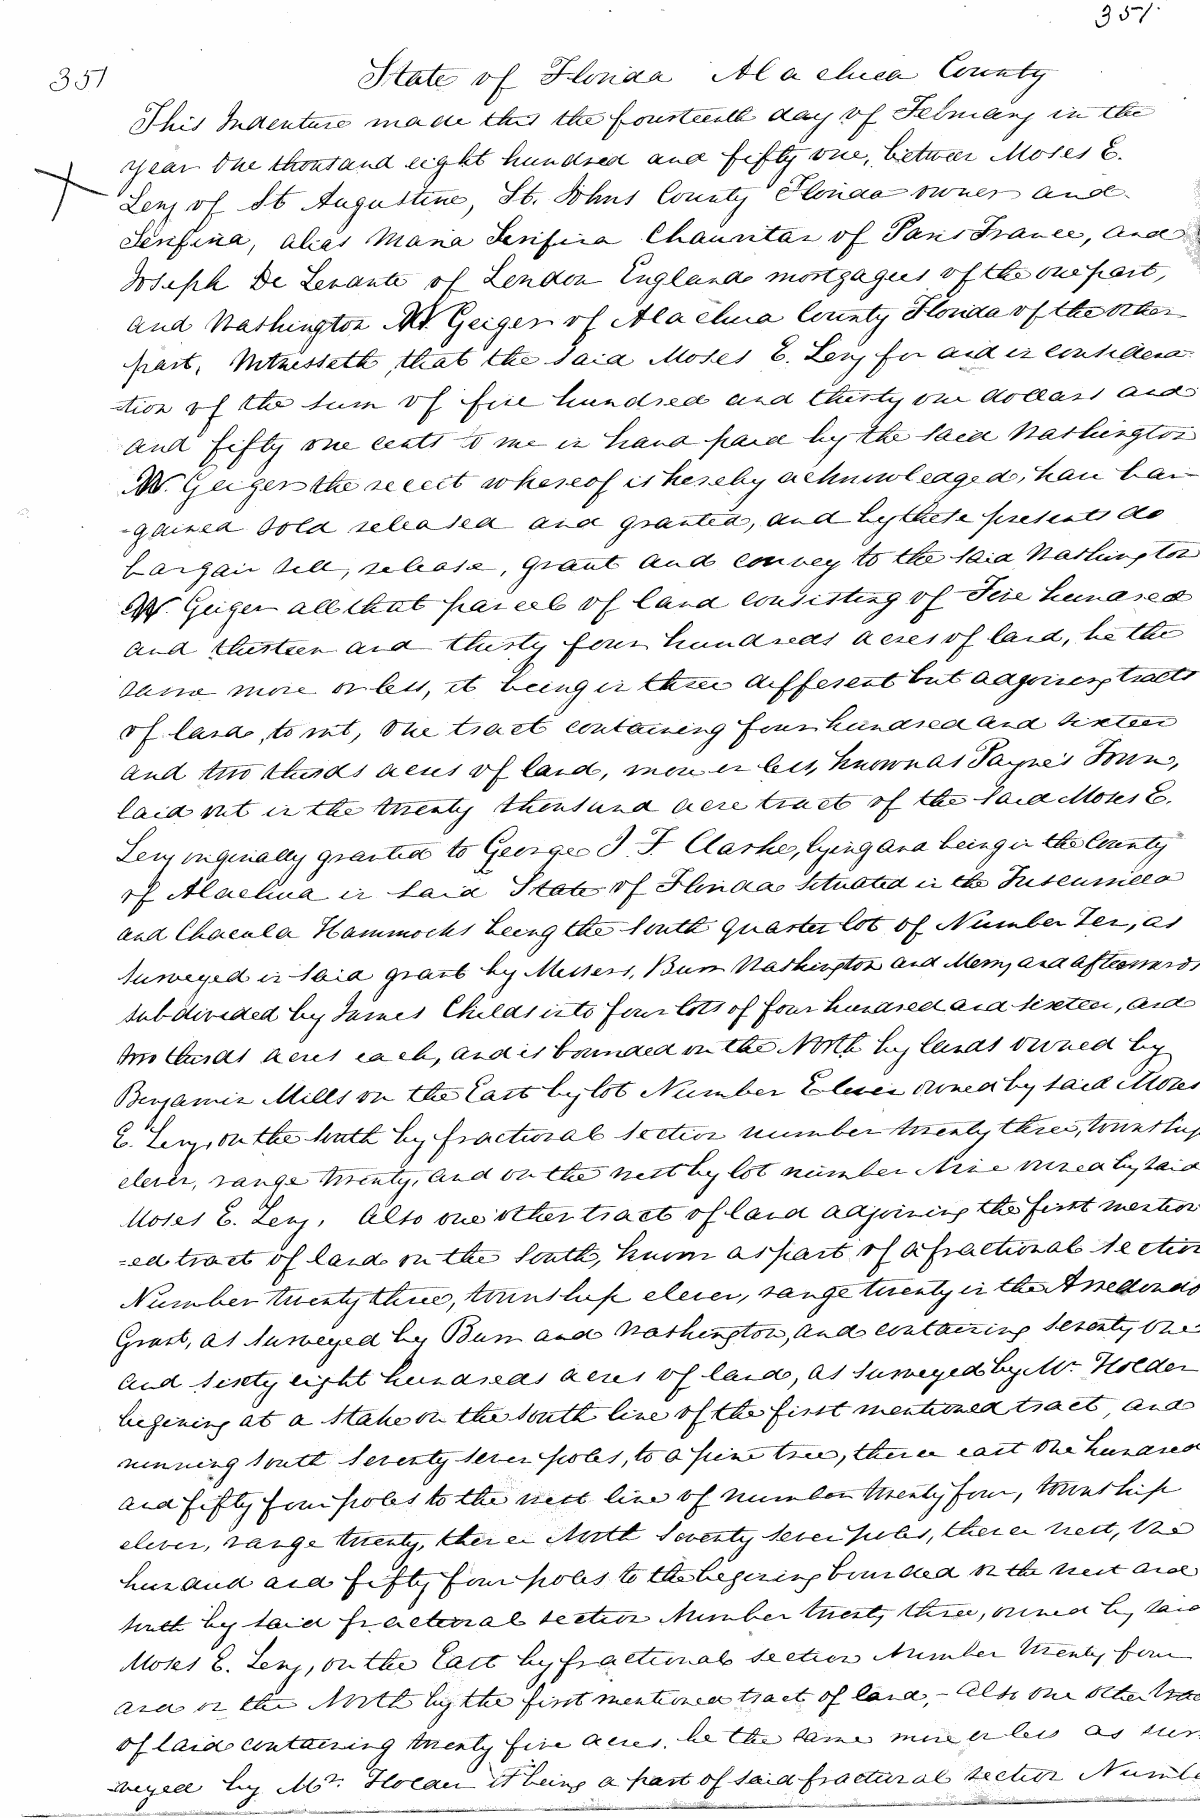 351.
351
State of Florida Alachua County
This Indenture made this the fourteenth day of February in the
year One thousand eight hundred and fifty one, between Moses E.
Levy of St Augustine, St. Johns County Florida owner and
Serifina, alias Maria Serifina Chauvitas of Paris France, and
Joseph De Levante of London England mortgagees of the one part,
and Washington W. Geiger of Alachua County Florida of the other
part, Witnesseth, that the said Moses E. Levy for and in considera-
-tion of the sum of five hundred and thirty one dollars and
and fifty one cents to me in hand paid by the said Washington
W. Geiger the receit whereof is hereby acknowledged, have bar-
-gained sold released and granted, and by these presents do
bargain sell, release, grant and convey to the said Washington
W. Geiger all that parcel of land consisting of Five hundred
and thirteen and thirty four hundreds acres of land, be the
same more or less, it being in three different but adjoining tracts
of land, to wit, One tract containing four hundred and sixteen
and two thirds acres of land, more or less, known as Payne's Town,
laid out in the twenty thousand acre tract of the said Moses E.
Levy originally granted to George J. F. Clarke, lying and being in the County
of Alachua in said State of Florida situated in the Tuscumilla
and Chacala Hammocks being the South quarter lot of Number Ten, as
surveyed in said grant by Messers, Burr Washington and Merry and afterwards
subdivided by James Childs into four lots of four hundred and sixteen, and
two thirds acres each, and is bounded on the North by lands owned by
Benjamin Mills on the East by lot Number Eleven owned by said Moses
E. Levy, on the South by fractional section number twenty three, township
eleven, range twenty, and on the west by lot number Nine owned by said
Moses E. Levy. Also one other tract of land adjoining the first mention-
-ed tract of land on the South, known as part of a fractional section
Number twenty three, township eleven, range twenty in the Arredondo
Grant, as surveyed by Burr and Washington, and containing seventy one
and sixty eight hundreds acres of land, as surveyed by Mr. Holder
begining at a stake on the South line of the first mentioned tract, and
running South seventy seven poles, to a pine tree, thence east One hundred
and fifty four poles to the west line of number twenty four, township
eleven, range twenty, thence North seventy seven poles, thence west, One
hundred and fifty four poles to the begining bounded on the west and
South by said fractional section Number twenty three, owned by said
Moses E. Levy, on the East by fractional section Number twenty four
and on the North by the first mentioned tract of land, - Also one other tract
of land containing twenty five acres, be the same more or less as sur-
-veyed by Mr. Holder it being a part of said fractional section Number